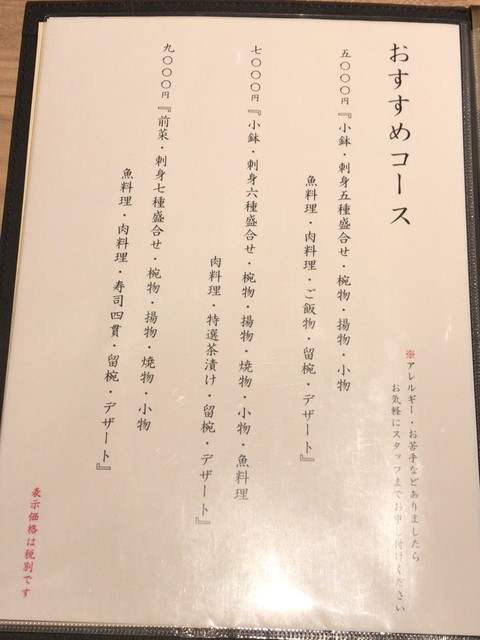 おすすめコース
※アレルギー・お苦手などありましたら
お気軽にスタッフまでお申し付けください
五〇〇〇円『小鉢・刺身五種盛合せ・椀物・揚物・小物
魚料理・肉料理・ご飯物・留椀・デザート』
七〇〇〇円『小鉢・刺身六種盛合せ・椀物・揚物・焼物・小物・魚料理
肉料理・特選茶漬け・留椀・デザート』
九〇〇〇円『前菜・刺身七種盛合せ・椀物・揚物・焼物・小物
魚料理・肉料理・寿司四貫・留椀・デザート』
表示価格は税別です